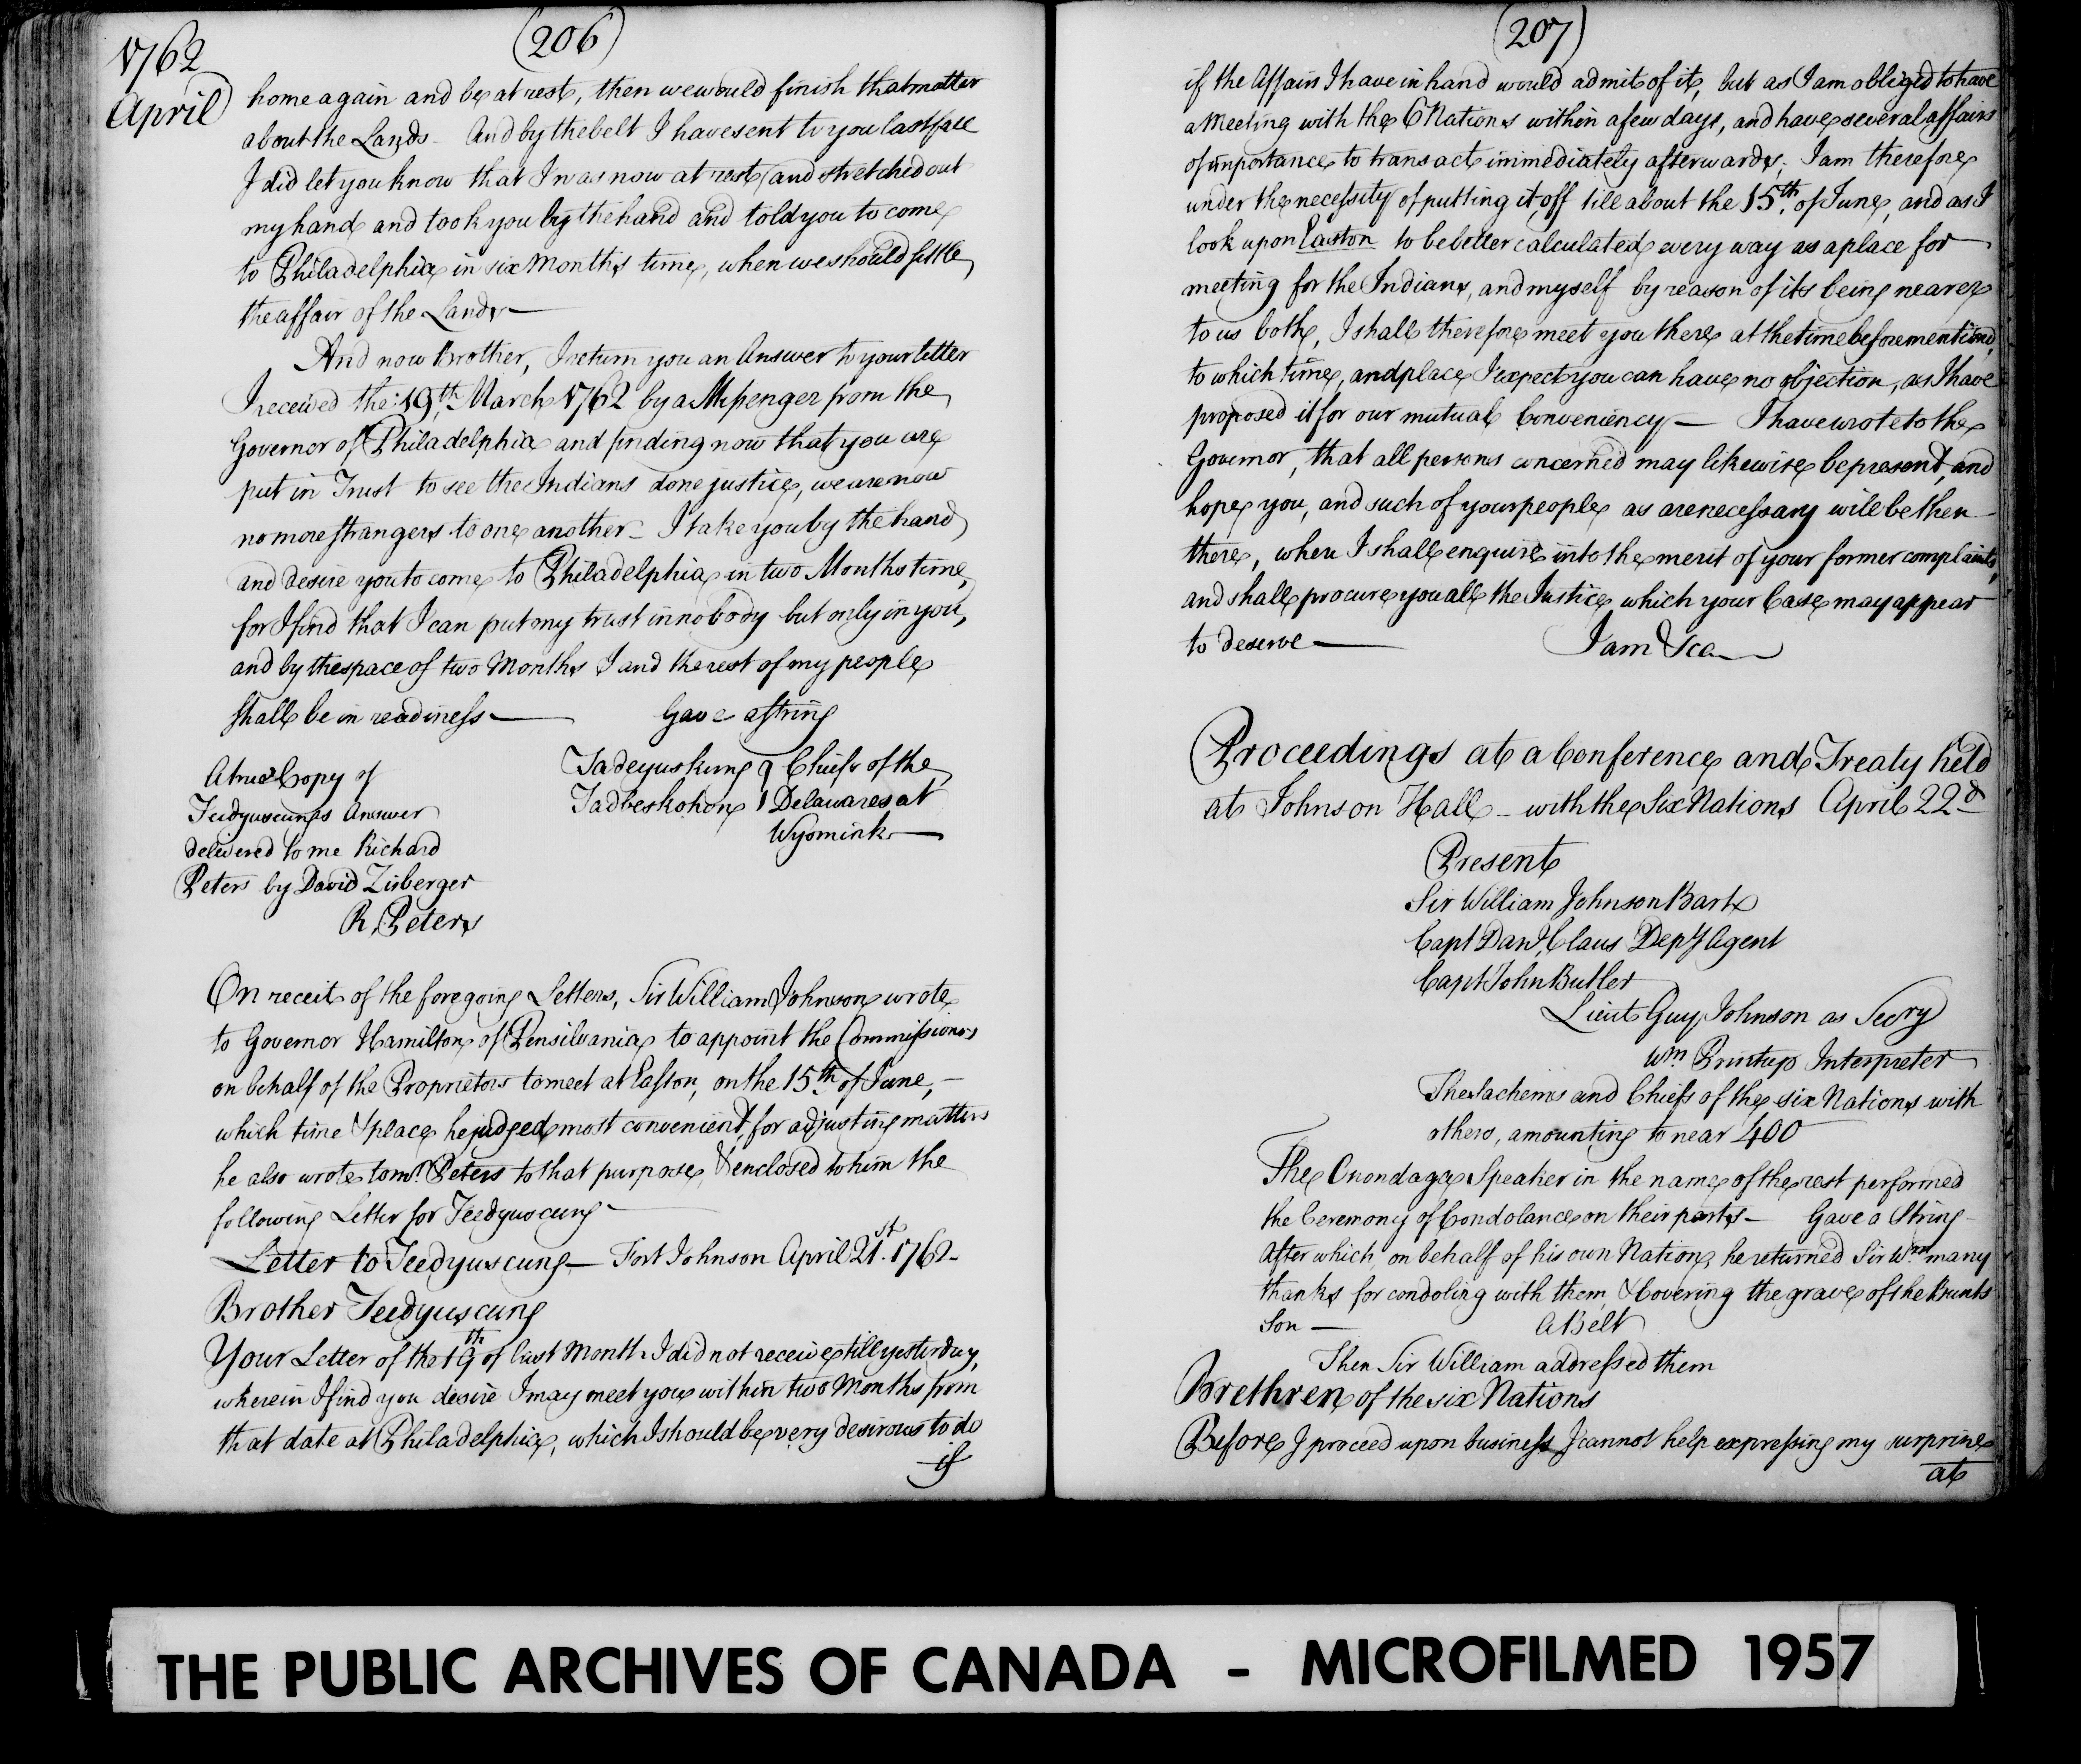 (206)
1762
April
home again and be at rest, then we would finish that matter
about the Lands - And by the belt I have sent to you last fall
I did let you know that I was now at rest, and stretched out
my hand and took you by the hand and told you to come
to Philadelphia in six Months time, when we should settle
the affair of the Lands —
And now Brother, I return you an Answer to your letter
I received the 19th, March 1762 by a Messenger from the
Governor of Philadelphia and finding now that you are
put in Trust to see the Indians done justice, we are now
no more strangers to one another - I take you by the hand
and desire you to come to Philadelphia in two Months time,
for I find that I can put my trust in nobody but only in you,
and by the space of two Months I and the rest of my people
shall be in readiness — Gave a string
Tadeyuskung } Chiefs of the
Tadbeskohon } Delawares at
Wyomink —
A true Copy of
Teedyuscungs Answer
delivered to me Richard
Peters by David Zisberger
R. Peters
On receit of the foregoing Letters, Sir William Johnson wrote
to Governor Hamilton of Pensilvania to appoint the Commissioners
on behalf of the Proprietors to meet at Easton, on the 15th of June, -
which time & place he judged most convenient, for adjusting matters
he also wrote to mr. Peters to that purpose, & enclosed to him the
following Letter for Teedyuscung -
Letter to Teedyuscung — Fort Johnson April 21st. 1762 -
Brother Teedyuscung
Your Letter of the 19th of last Month I did not receive till yesterday,
wherein I find you desire I may meet you within two Months from
that date at Philadelphia, which I should be very desirous to do
if
(207)
if the Affairs I have in hand would admit of it, but as I am obliged to have
a Meeting with the 6 Nations within a few days, and have several affairs
of importance to transact immediately afterwards; I am therefore
under the necessity of putting it off till about the 15th, of June, and as I
look upon Easton to be better calculated every way as a place for
meeting for the Indians, and myself by reason of its being nearer
to us both, I shall therefore meet you there at the time beforementiond,
to which time, and place I expect you can have no objection, as I have
proposed it for our mutual Conveniency — I have wrote to the
Governor, that all persons concerned may likewise be present, and
hope you, and such of your people as are necessary will be then
there, when I shall enquire into the merit of your former complaints,
and shall procure you all the Justice which your Case may appear
to deserve — I am &ca
Proceedings at a Conference and Treaty held
at Johnson Hall - with the Six Nations April 22d
Present
Sir William Johnson Bart
Capt Danl. Claus Depy Agent
Capt John Butler
Lieut Guy Johnson as Secry
Wm Printup Interpreter
The Sachems and Chiefs of the six Nations with
others, amounting to near 400
The Onondaga Speaker in the name of the rest performed
the Ceremony of Condolance on their parts — Gave a String -
After which, on behalf of his own Nation, he returned Sir Wm. many
thanks for condoling with them, & Covering the grave of the Bunts
Son — A Belt
Then Sir William addressed them
Brethren of the six Nations
Before I proceed upon business I cannot help expressing my surprise
at
THE PUBLIC ARCHIVES OF CANADA - MICROFILMED 1957